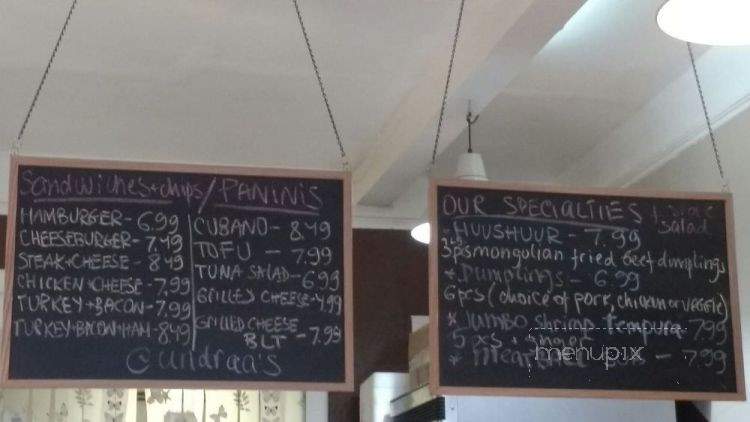 Sandwiches+chips/PANINIS
HAMBURGER- 6.99
CHEESEBURGER- 7.49
STEAK+CHEESE- 8.49
CHICKEN+CHEESE- 7.99
TURKEY+BACON- 7.99
TURKEY+BACON+HAM- 8.49
CUBANO- 8.49
TOFU - 7.99
TUNA SALAD- 6.99
GRILLED CHEESE- 4.99
GRILLED CHEESE
BLT -7.99
@undraa's
OUR SPECIALTIES
Salad
HUUSHUUR - 7.99
3psmongolian fried beef dumplings
*Dumplings - 6.99
6pcs (choice of pork, chicken or veggie)
*Jumbo shrimp tempura 7.99
5 pcs
* - 7.99
menupix